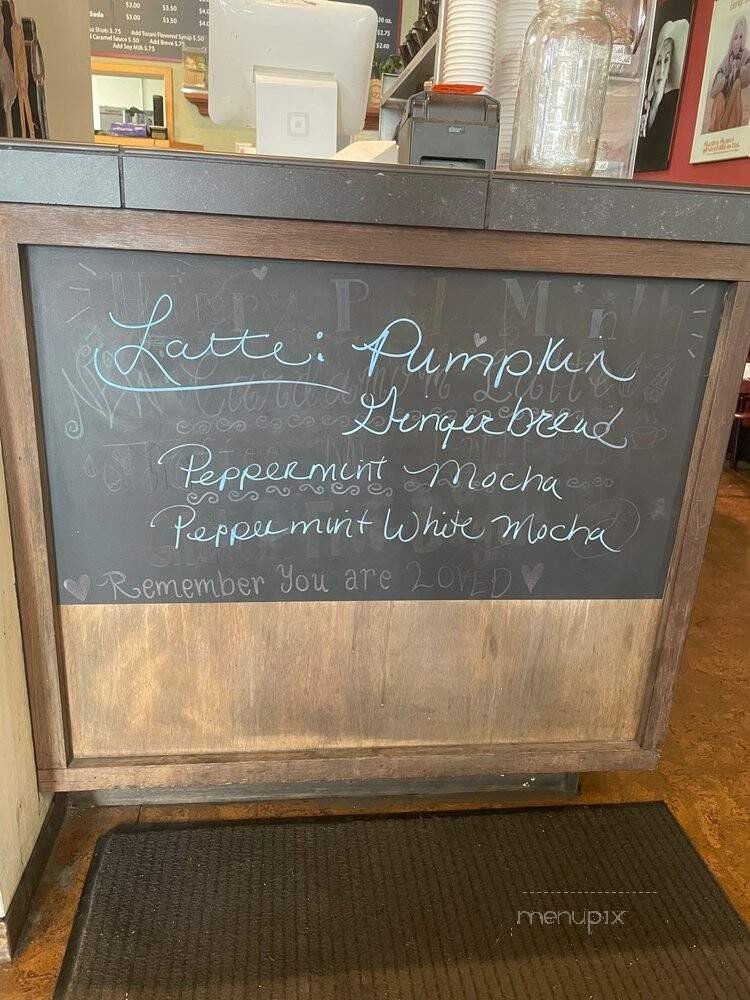 $3.00 $3.50
Soda $3.00 $3.50
Add Torani Flavored Syrup $.50
Caramel Sauce $.50 Add Breve $.75
Add Soy Milk $.75
20 oz.
$2.75
$2.40
Latte: Pumpkin
Gingerbread
Peppermint Mocha
Peppermint White Mocha
Remember You are LOVED
menupix